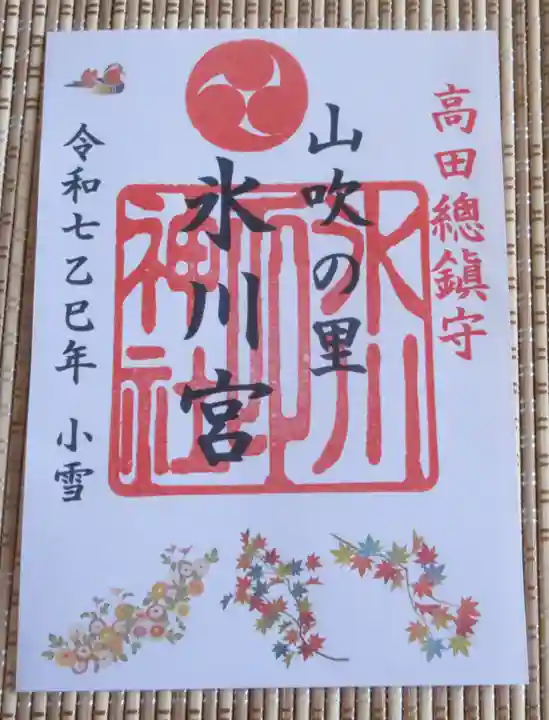 高田總鎮守
山吹の里
氷川宮
氷川神社
令和七乙巳年 小雪